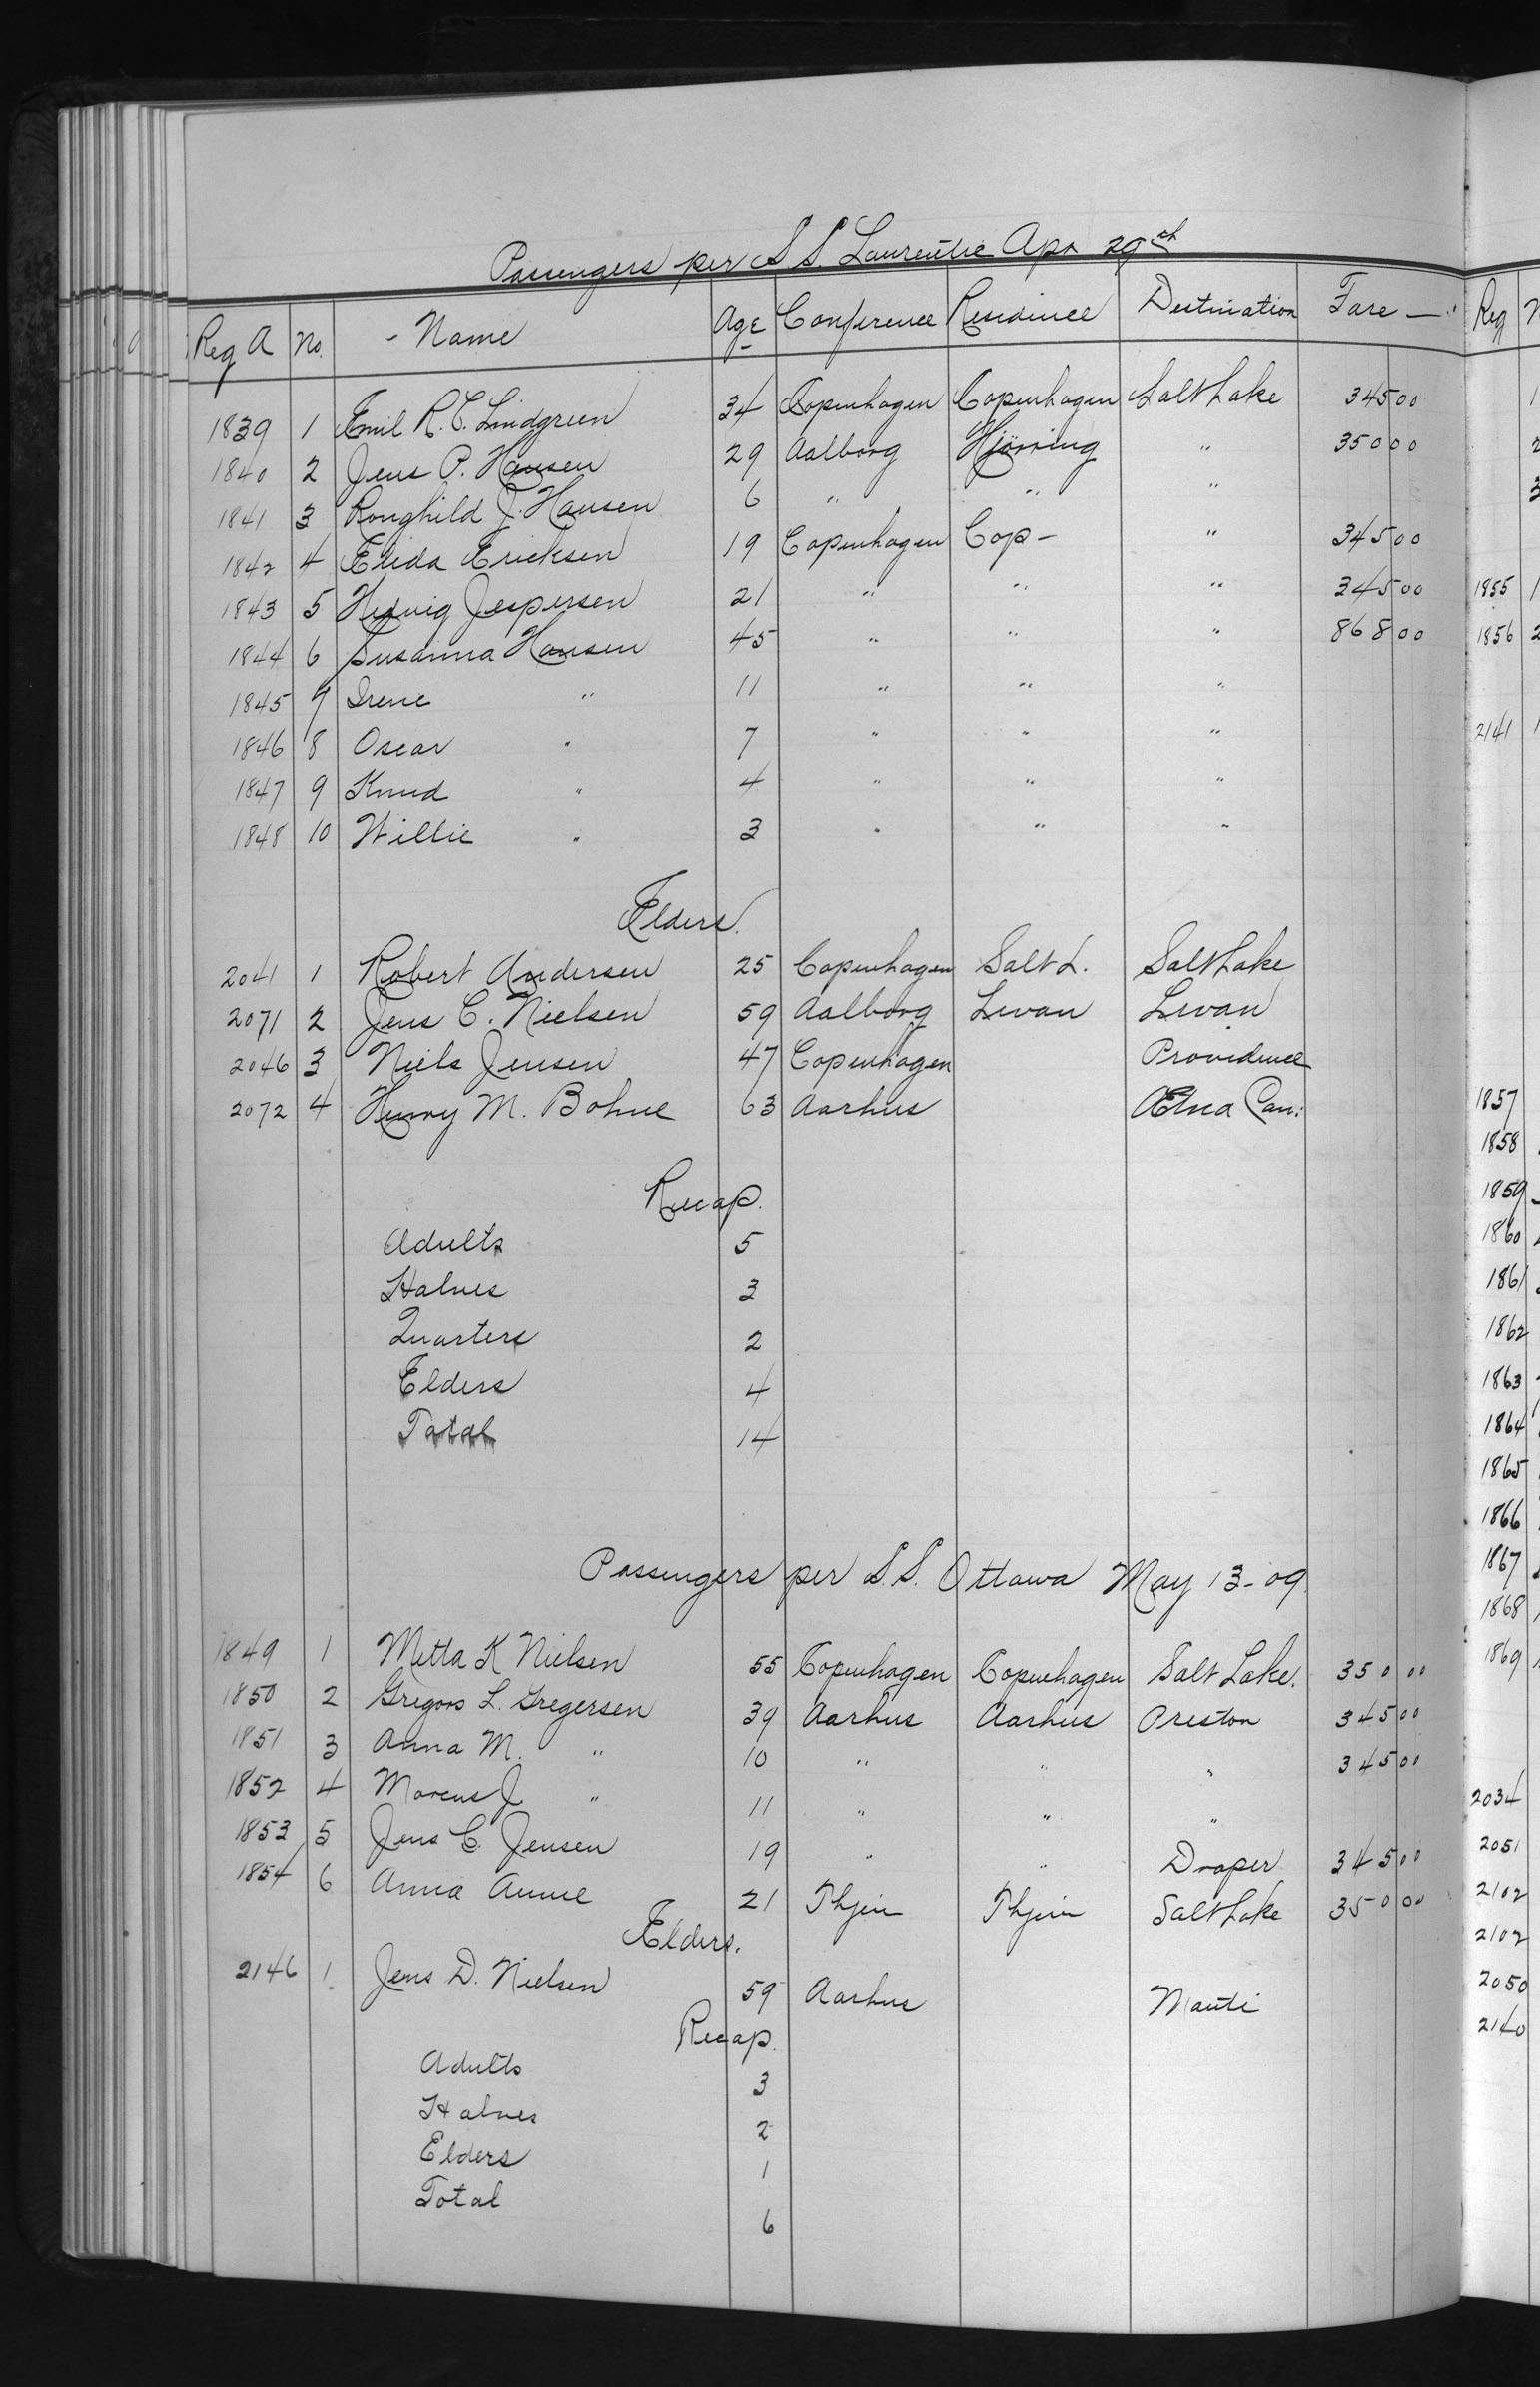 Passengers per S S. Laurentic Apr 29th
Reg A No. Name Age Conference Residence Destination Fare — Reg
1839 1 Emil R. C. Lindgreen 34 Copenhagen Copenhagen Salt Lake 345 00
1840 2 Jens P. Hansen 29 Aalborg Hjörring " 350 00
1841 3 Ronghild J. Hansen 6 " " "
1842 4 Elida Ericksen 19 Copenhagen Cop- " 345 00
1843 5 Hedvig Jespersen 21 " " " 345 00 1855 1
1844 6 Susanna Hansen 45 " " " 868 00 1856 2
1845 7 Irene " 11 " " "
1846 8 Oscar " 7 " " " 2141 1
1847 9 Knud " 4 " " "
1848 10 Willie " 3 " " "
Elders.
2041 1 Robert Andersen 25 Copenhagen Salt L. Salt Lake
2071 2 Jens C. Nielsen 59 Aalborg Levan Levan
2046 3 Niels Jensen 47 Copenhagen Providence
2072 4 Henry M. Bohne 63 Aarhus Ætna Can: 1857
1858
Recap. 1859
Adults 5 1860
Halves 3 1861
Quarters 2 1862
Elders 4 1863
Total 14 1864
1865
1866
Passengers per S.S. Ottawa May 13-09. 1867
1868
1849 1 Metta K Nielsen 55 Copenhagen Copenhagen Salt Lake. 350 00 1869
1850 2 Gregors L. Gregersen 39 Aarhus Aarhus Preston 345 00
1851 3 Anna M. " 10 " " " 345 00
1852 4 Marcus J " 11 " " " 2034
1853 5 Jens C. Jensen 19 " " Draper 345 00 2051
1854 6 Anna Aune 21 Thjem Thjem Salt Lake 350 00 2102
Elders. 2102
2146 1 Jens D. Nielsen 59 Aarhus Manti 2050
Recap. 2140
Adults 3
Halves 2
Elders 1
Total 6